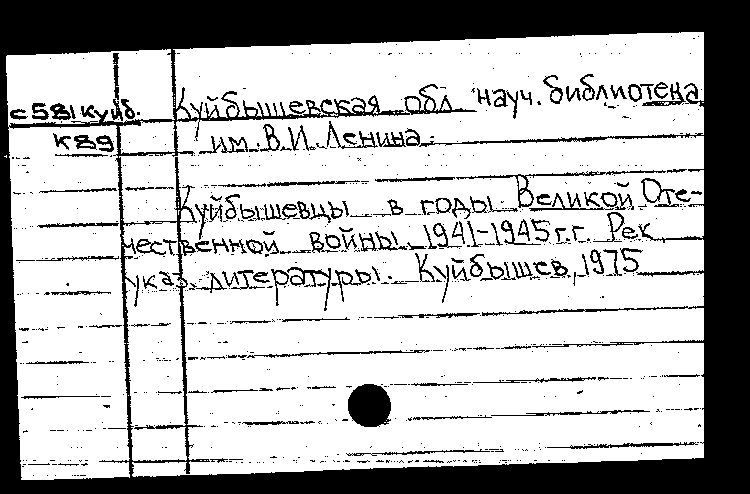 с581куйб. Куйбышевская обл науч. библиотека
К89 им. В.И. Ленина.
Куйбышевцы в годы Великой Оте-
чественной войны 1941-1945г.г. Рек.
указ. литературы. Куйбышев, 1975